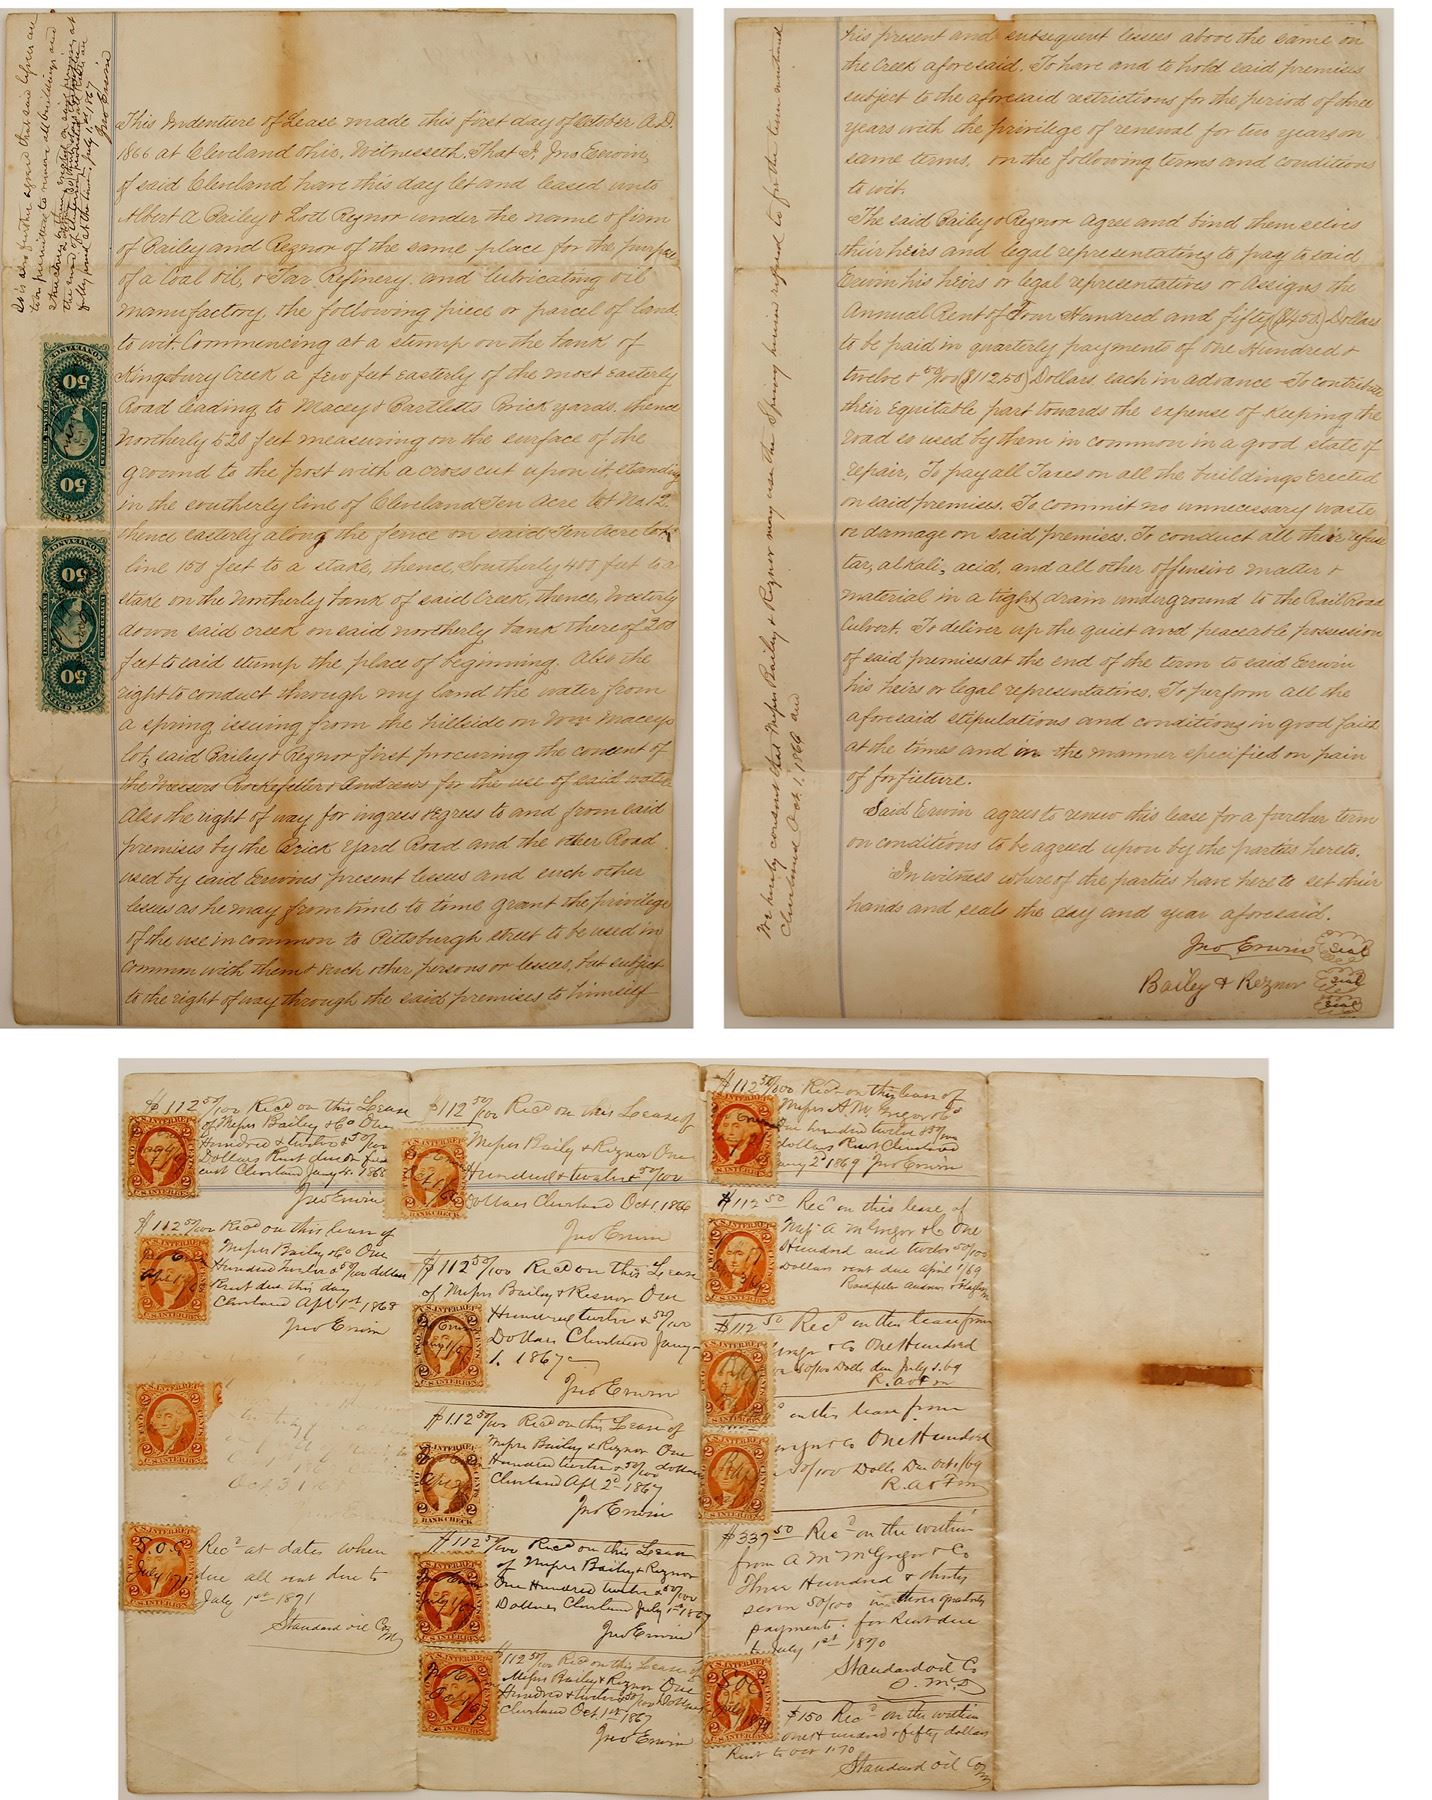 It is also further agreed that said lessees are
to be permitted to remove all buildings and
fully paid at the time. July 1st 1867
Jno Erwin
This Indenture of Lease made this first day of October A.D.
1866 at Cleveland Ohio. Witnesseth, That I, Jno Erwin,
of said Cleveland have this day let and leased unto
Albert A Bailey & Lod Reznor under the name & firm
of Bailey and Reznor of the same place for the purpose
of a Coal Oil, & Tar Refinery, and lubricating oil
manufactory, the following piece or parcel of land,
to wit. Commencing at a stump on the bank of
Kingsbury Creek a few feet easterly of the most easterly
Road leading to Macey & Bartletts Brick yards, thence
Northerly 520 feet measuring on the surface of the
ground to the post with a cross cut upon it, standing
in the southerly line of Cleveland Ten Acre lot No. 12.
thence easterly along the fence on said Ten Acre lot
line 150 feet to a stake, thence, Southerly 400 feet to a
stake on the Northerly bank of said Creek, thence, Westerly
down said creek on said northerly bank thereof 200
feet to said stump the place of beginning. Also the
right to conduct through my land the water from
a spring issuing from the hillside on Wm Maceys
lot, said Bailey & Reznor first procuring the concent of
the Messers Rockefeller & Andrews for the use of said water
Also the right of way for ingress & egress to and from said
premises by the Brick Yard Road and the other Road
used by said Erwins present lesses and such other
lesses as he may from time to time grant the privilege
of the use in common to Pittsburgh street to be used in
common with them & such other persons or lesses, but subject
to the right of way through the said premises to himself
his present and subsequent lesses above the same on
the Creek aforesaid. To have and to hold said premises
subject to the aforesaid restrictions for the period of three
years with the privilege of renewal for two years on
same terms, on the following terms and conditions
to wit.
The said Bailey & Reznor agree and bind themselves
their heirs and legal representatives to pay to said
Erwin his heirs or legal representatives or Assigns the
Annual Rent of Four Hundred and fifty ($450.) Dollars
to be paid in quarterly payments of One Hundred &
twelve & 50/100 ($112.50) Dollars, each in advance. To contribute
their Equitable part towards the expense of Keeping the
road so used by them in common in a good state of
repair, To pay all Taxes on all the buildings Erected
on said premises. To commit no unnecessary waste
or damage on said premises. To conduct all their refuse
tar, alkali, acid, and all other offensive matter &
material in a tight drain underground to the Rail Road
Culvert. To deliver up the quiet and peaceable possession
of said premises at the end of the term to said Erwin
his heirs or legal representatives. To perform all the
aforesaid stipulations and conditions in good faith
at the times and in the manner specified on pain
of forfieture.
Said Erwin agrees to renew this lease for a further term
on conditions to be agreed upon by the parties hereto.
In witness whereof the parties have hereto set their
hands and seals the day and year aforesaid.
Jno Erwin Seal
Bailey & Reznor Seal
Seal
We hereby consent that Messrs Bailey & Reznor may use the Spring herein referred to for the term mentioned
Cleveland Oct. 1, 1866
$112 50/100 Recd on this Lease
of Messrs Bailey & Co One
Hundred & twelve & 50/100
Dollars Rent due
Cleveland Jany 4. 1868
Jno Erwin
$112 50/100 Recd on this lease of
Messrs Bailey & Co One
Hundred Twelve & 50/100 dollars
Rent due this day
Cleveland Apl 1st 1868
Jno Erwin
Oct 3 1868
S.O.C.
July 1/71
Recd at dates when
due all rent due to
July 1st 1871
Standard Oil Co
$112 50/100 Recd on this Lease of
Messrs Baily & Reznor One
Hundred & twelve & 50/100
Dollars Cleveland Oct 1, 1866
Jno Erwin
$112 50/100 Recd on this Lease
of Messrs Bailey & Resnor One
Hundred twelve & 50/100
Dollars Cleveland Jany
1. 1867
Jno Erwin
$112 50/100 Recd on this Lease of
Messrs Bailey & Reznor One
Hundred twelve & 50/100 dollars
Cleveland Apl 2d 1867
Jno Erwin
$112 50/100 Recd on this Lease
of Messrs Bailey & Reznor
One Hundred twelve & 50/100
Dollars Cleveland July 1st 1867
Jno Erwin
$112 50/100 Recd on this Lease of
Messrs Bailey & Reznor One
Hundred & twelve 50/100 Dollars
Cleveland Oct 1st 1867
Jno Erwin
$112 50/100 Recd on this lease of
Messrs A. McGregor & Co
One hundred twelve 50/100
dollars Rent Cleveland
Jany 2d 1869 Jno Erwin
$112 50 Recd on this lease of
Messrs A McGregor & Co One
Hundred and twelve 50/100
Dollars rent due April 1/69
Rockefeller Andrews & Flagler
$112 50 Recd on this lease from
& Co One Hundred
50/100 Dolls due July 1. 69
R. A & F
on this lease from
& Co One Hundred
50/100 Dolls Due Oct 1/69
R. A & F
$337 50 Recd on the within
from A McGregor & Co
Three Hundred & thirty
seven 50/100 in three quarterly
payments. for Rent due
to July 1st 1870
Standard Oil Co
$150 Recd on the within
One Hundred & fifty dollars
Rent to Oct 1. 70
Standard Oil Co